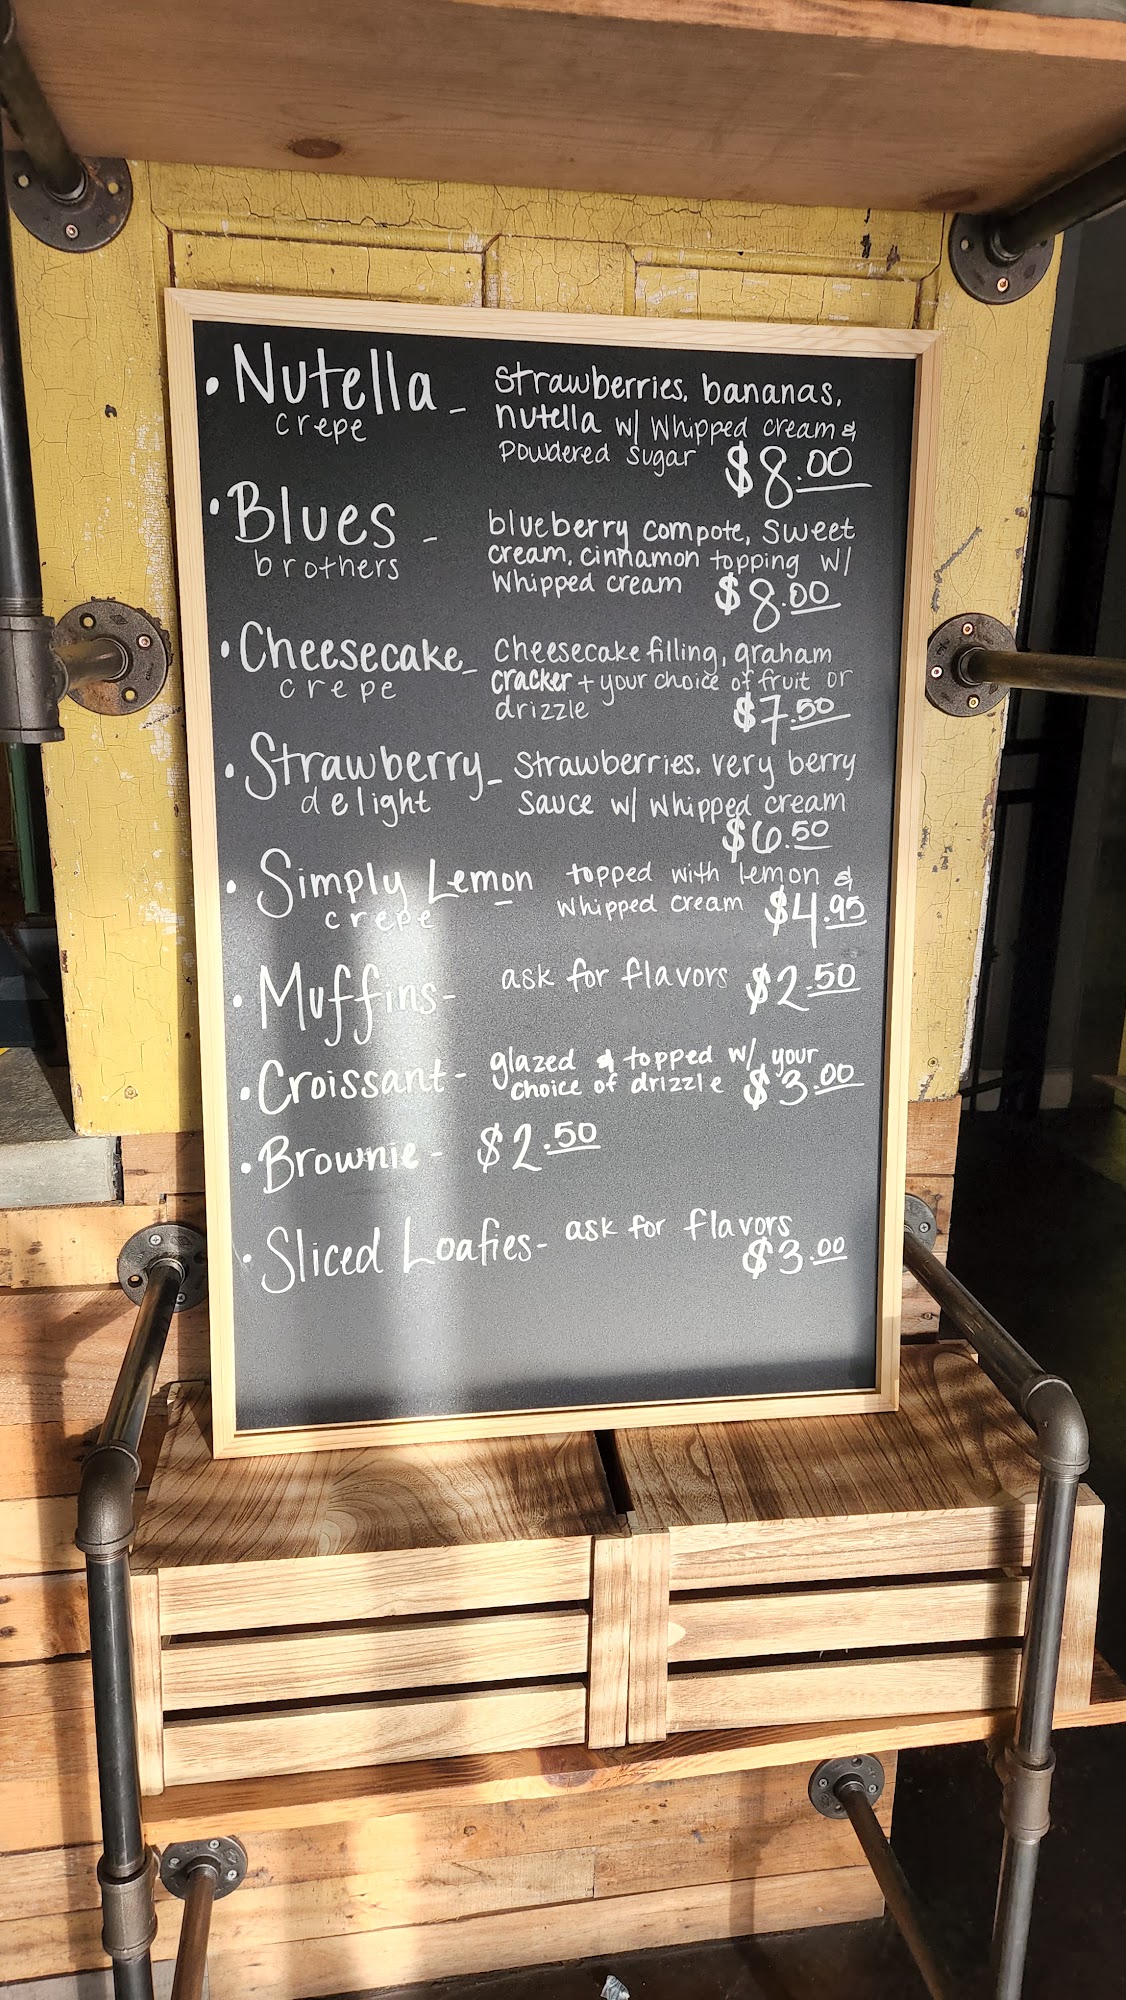 • Nutella - strawberries, bananas,
crepe nutella w/ whipped cream &
Powdered sugar $8.00
• Blues - blueberry compote, sweet
brothers cream, cinnamon topping w/
Whipped cream $8.00
• Cheesecake - Cheesecake filling, graham
crepe cracker + your choice of fruit or
drizzle $7.50
• Strawberry - Strawberries, very berry
delight Sauce w/ whipped cream
$6.50
• Simply Lemon topped with lemon &
crepe whipped cream $4.95
• Muffins - ask for flavors $2.50
• Croissant - glazed & topped w/ your
choice of drizzle $3.00
• Brownie - $2.50
• Sliced Loafies - ask for flavors
$3.00